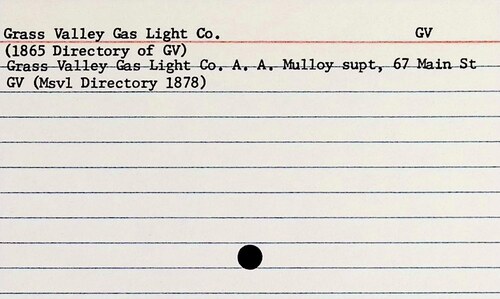 Grass Valley Gas Light Co. GV
(1865 Directory of GV)
Grass Valley Gas Light Co. A. A. Mulloy supt, 67 Main St
GV (Msvl Directory 1878)